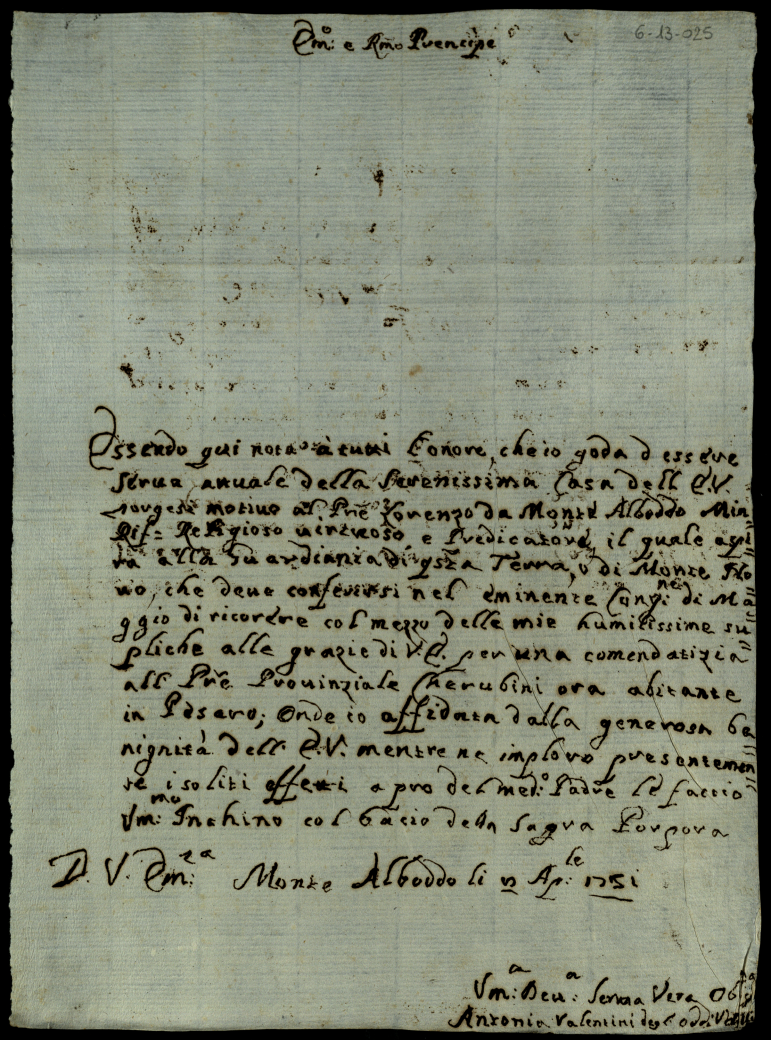 6-13-025
Em:o e Rmo Prencipe
Essendo qui noto à tutti l'onore, che io goda d essere
serua anuale della Serenissima Casa dell E.V.
sorgesi motiuo al Pre Lorenzo da Monte Alboddo Min=
Rif= Religioso uirtuoso e Predicatore, il quale aspi=
ra alla Guardiania di qsta Terra, o di Monte No=
uo, che deue conferirsi nel eminente Cong:ne di Ma=
ggio di ricorere col mezzo delle mie humilissime su=
pliche alle grazie di V.E. per una comendatizia
all Pre Prouinziale Cherubini ora abitante
in Pesaro; Onde io affidata dalla generosa be=
nignità dell E.V. mentre ne imploro presentemen=
te i soliti effetti a pro del med:o Padre le faccio
Vm:mo Inchino col bacio della Sagra Porpora
D. V. Em:za Monte Alboddo li 12 Ap:le 1751
Vm:a Deu:a Serua Vera Obl:a
Antonia Valentini degl Oddi